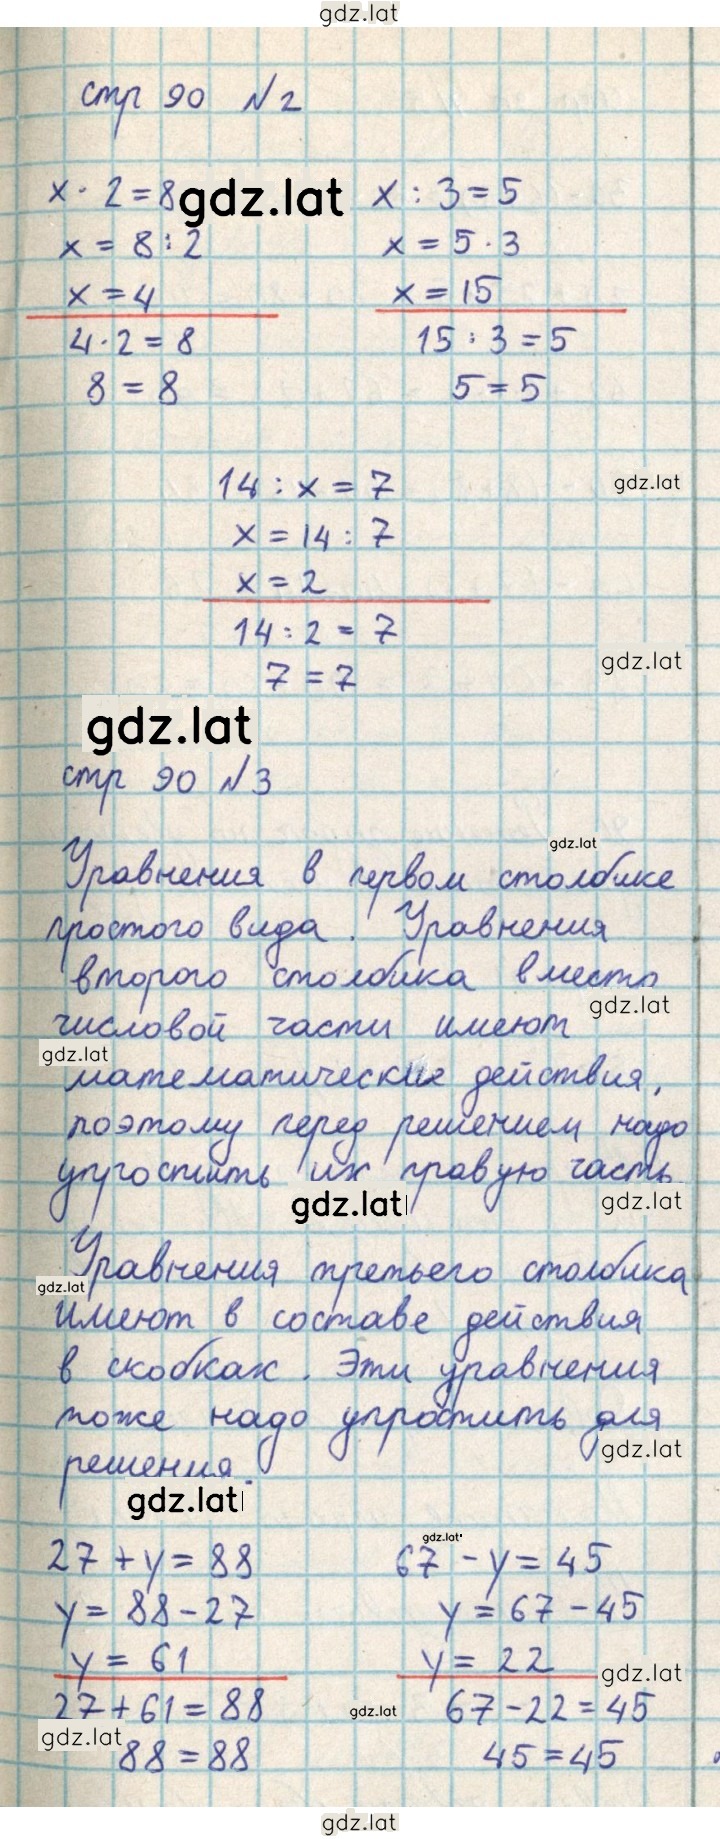 gdz.lat
стр 90 №2
x · 2 = 8 gdz.lat x : 3 = 5
x = 8 : 2 x = 5 · 3
x = 4 x = 15
4 · 2 = 8 15 : 3 = 5
8 = 8 5 = 5
14 : x = 7 gdz.lat
x = 14 : 7
x = 2
14 : 2 = 7
gdz.lat
7 = 7
gdz.lat
стр 90 №3
gdz.lat
Уравнения в первом столбике
простого вида. Уравнения
второго столбика вместо
gdz.lat
числовой части имеют
gdz.lat
математические действия,
поэтому перед решением надо
упростить их правую часть
gdz.lat gdz.lat
Уравнения третьего столбика
gdz.lat
имеют в составе действия
в скобках. Эти уравнения
тоже надо упростить для
gdz.lat
решения.
gdz.lat
gdz.lat
27 + y = 88 67 - y = 45
y = 88 - 27 y = 67 - 45
y = 61 y = 22 gdz.lat
27 + 61 = 88 gdz.lat 67 - 22 = 45
gdz.lat
88 = 88 45 = 45
gdz.lat